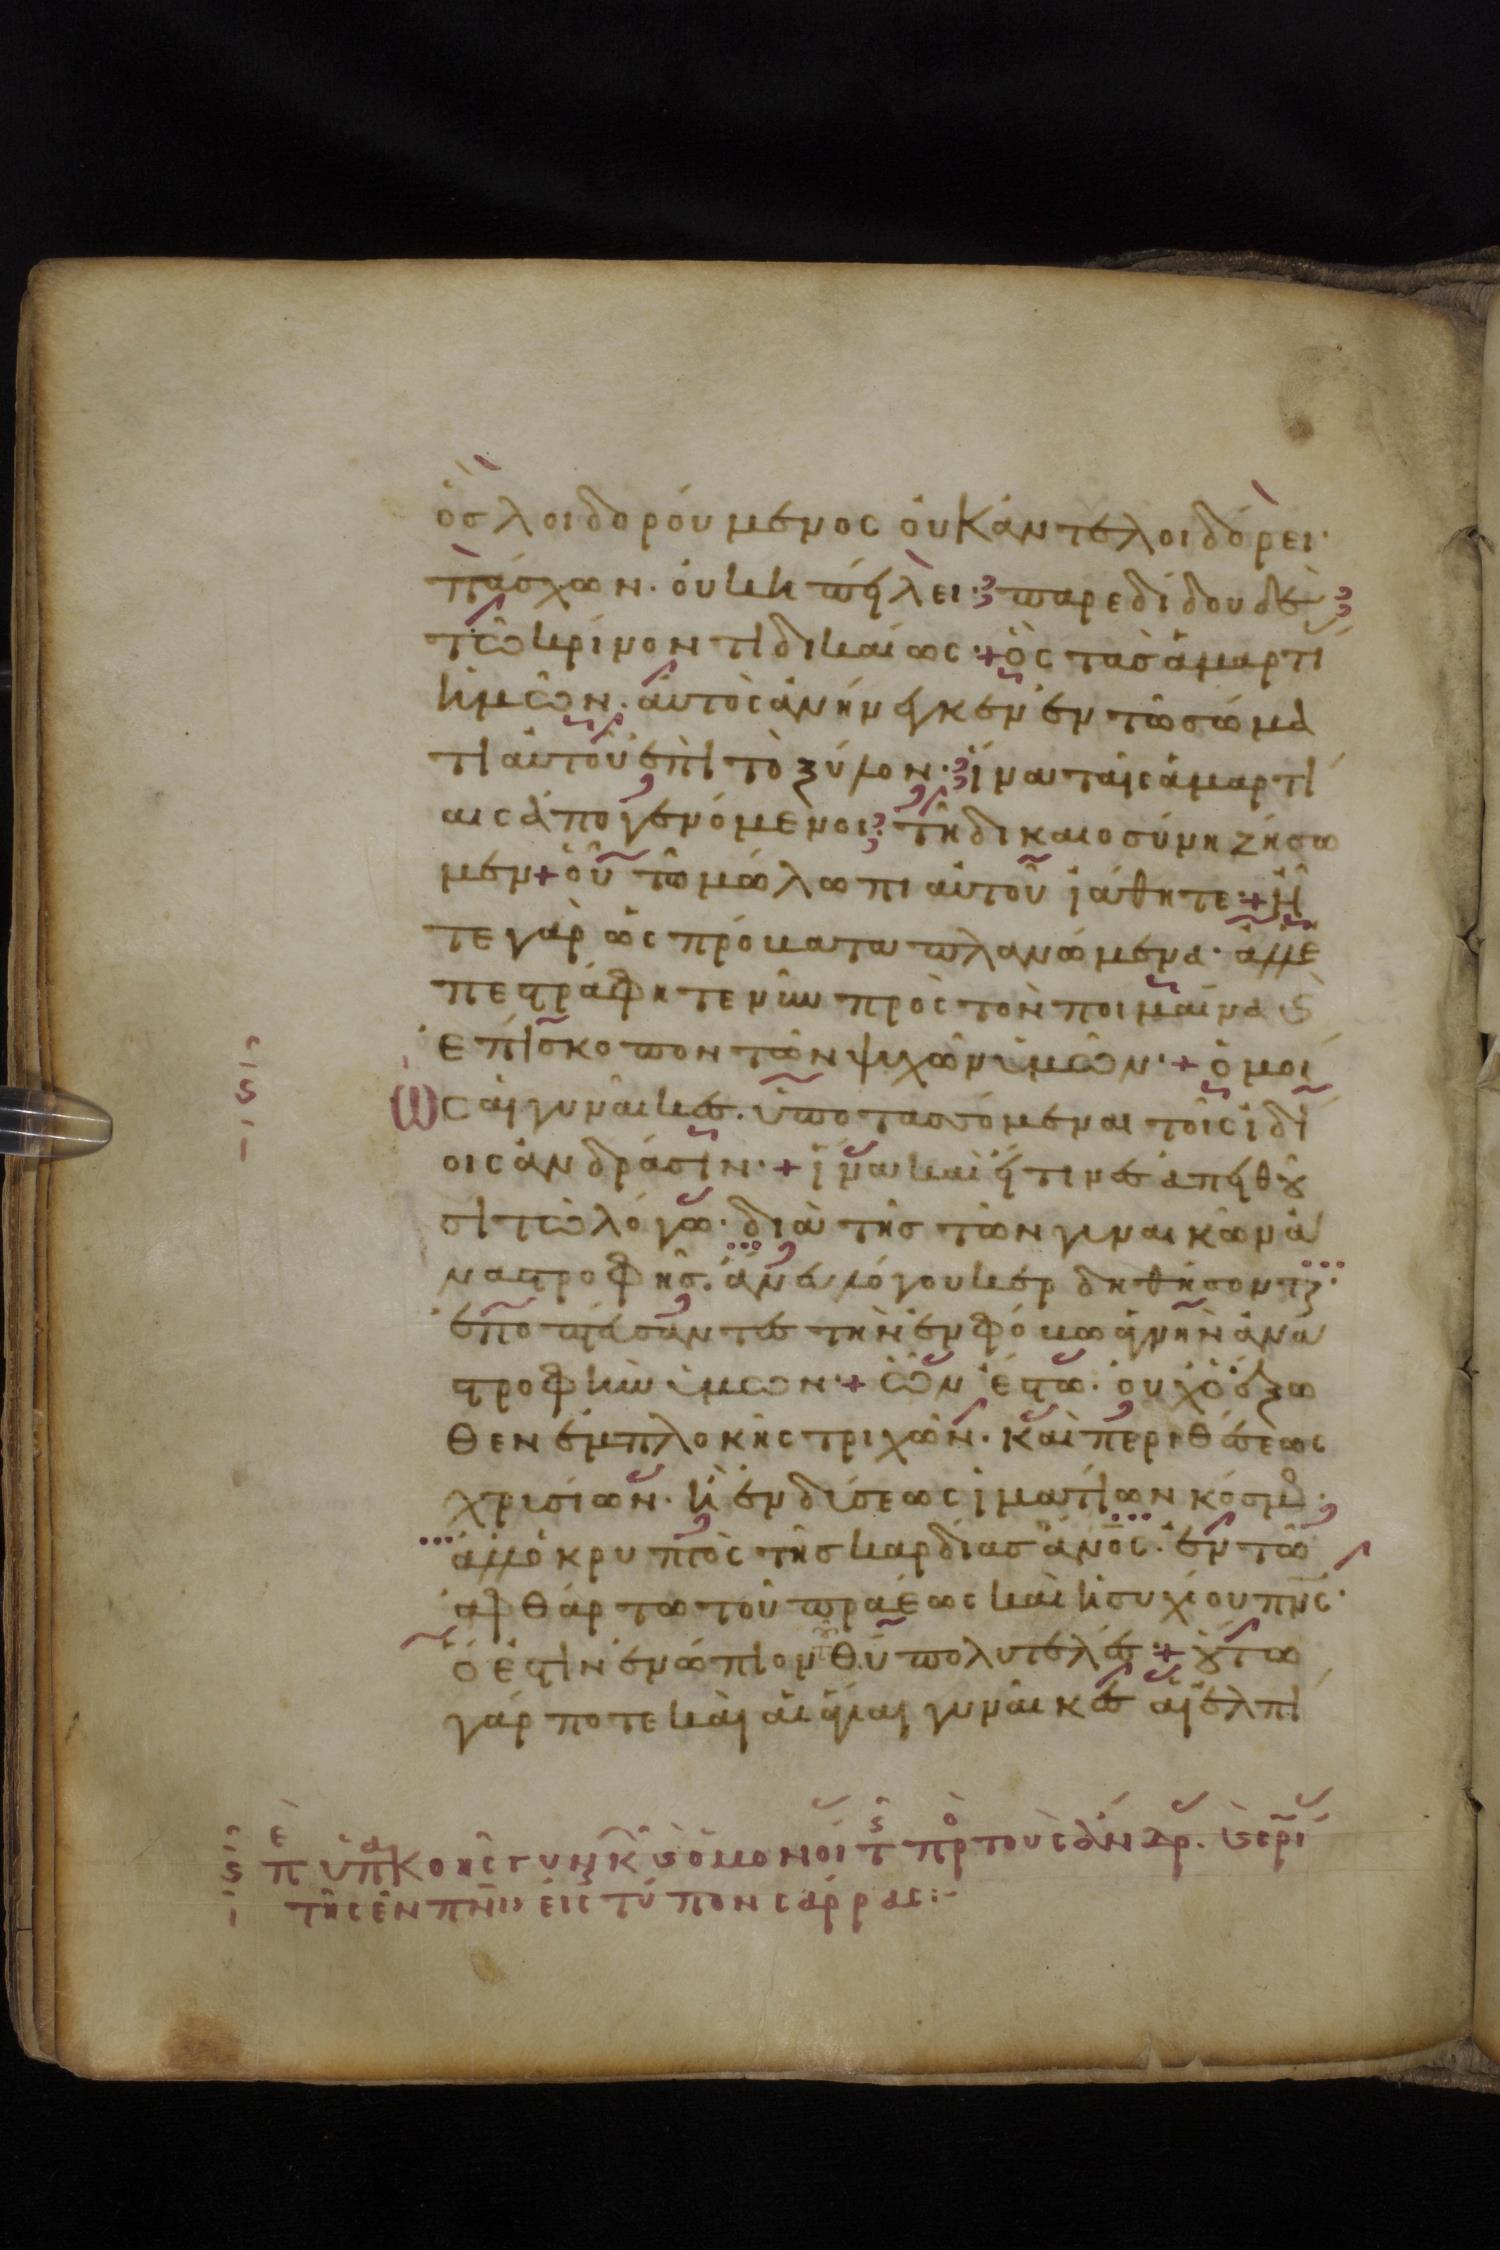 ὃσ λοιδορόυμενος ὀυκ ἀντελοιδόρει·
πάσχων· ὀυκ ἠπείλει· παρεδίδου δὲ
τῶ κρίνοντι δικαίως·+ ὃς τὰσ ἁμαρτί
ἡμῶν· ἀυτὸς ἀνήνεγκεν ἐν τῶ σώμα
τι ἀυτοῦ ἐπὶ τὸ ξύλον· ἵνα ταῖς ἁμαρτί
αις ἀπογενόμενοι· τῆ δικαιοσύνη ζήσω
μεν+ ὁῦ τῶ μώλωπι ἀυτοῦ ἰάθητε·+ ἦ
τε γὰρ ὡς πρόβατα πλανώμενα· ἀλλ ἐ
πεστράφητε νῦν πρὸς τὸν ποιμαίνα ϗ
ἐπίσκοπον τῶν ψυχῶν ὑμῶν·+ ὁμοί
ως ἁι γυνᾶικες· ὑποτασσόμεναι τοῖς ἰδί
οις ἀνδράσιν·+ ἵνα καὶ εἴ τινες ἀπειθȣ
σι τῶ λόγω· διὰ τῆσ τῶν γυναικῶν ἀ
ναστροφῆσ· ἄνευ λόγου κερδηθήσονται·
ἐποπτέυσαντες τὴν ἐν φόβω ἁγνὴν ἀνα
στροφὴν ὑμῶν·+ ὧν ἔστω· ὀυχ ὁ ἔξω
θεν ἐμπλοκῆς τριχῶν· καὶ περιθέσεως
χρυσίων· ἢ ἐνδύσεως ἱματίων κόσμος·
ἀλλ ὁ κρυπτὸς τῆσ καρδίασ ἄνος· ἐν τῶ
ἀφθάρτω τοῦ πραέως καὶ ἡσυχίου πνς·
ὅ ἐστιν ἐνώπιον τοῦ θυ πολυτελές·+ ȣτω
γάρ ποτε καὶ ἁι ἅγιαι γυνᾶικες ἁι ἐλπί